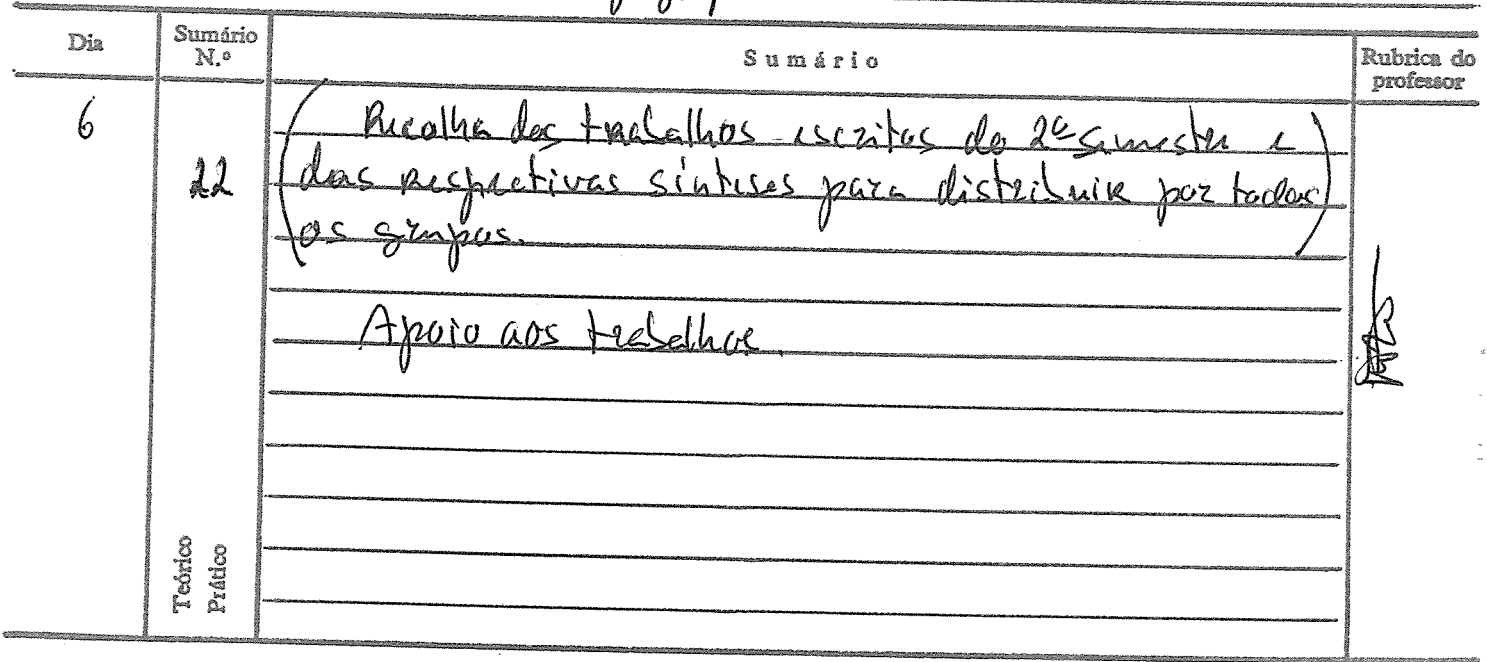 Dia
Sumário N.º
Sumário
Rubrica do professor
6
22
Recolha dos trabalhos escritos do 2º semestre e
das respectivas sínteses para distribuir por todos
os grupos.
Apoio aos trabalhos.
Teórico
Prático